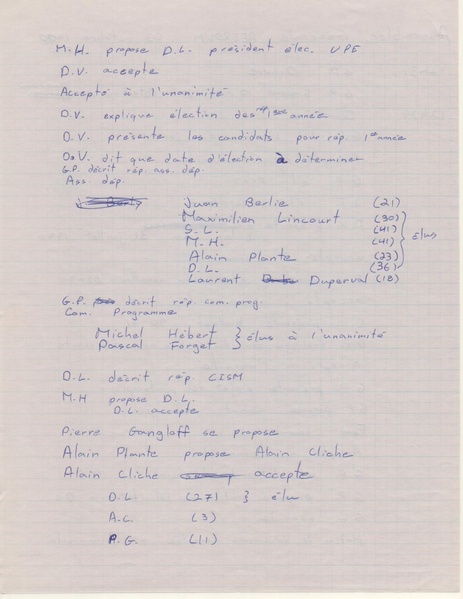 M.H. propose D.L. président élec. UPE
D.V. accepte
Accepté à l'unanimité
D.V. explique élection des rép. 1ère année
D.V. présente les candidats pour rép. 1ère année
D.V. dit que date d'élection à déterminer
G.P. décrit rép. ass. dép.
Ass. dép.
Juan Berlie (21)
Maximilien Lincourt (30)
S.L. (41)
M.H. (41) élus
Alain Plante (23)
D.L. (36)
Laurent Duperval (18)
G.P. décrit rép. com. prog.
Com. Programme
Michel Hébert } élus à l'unanimité
Pascal Forget
D.L. décrit rép. CISM
M.H propose D.L.
D.L. accepte
Pierre Gangloff se propose
Alain Plante propose Alain Cliche
Alain Cliche accepte
D.L. (27) } élu
A.C. (3)
P.G. (11)